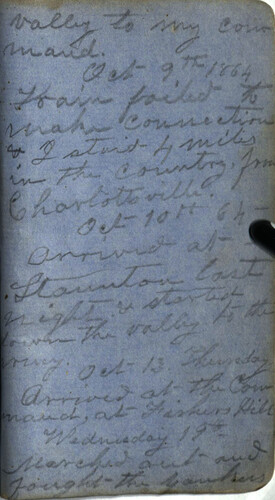 valley to my com
mand.
Oct 9th 1864
Train failed to
make connection
& I staid 4 miles
in the country, from
Charlottsville.
Oct 10th 64
Arrived at
Staunton last
night & started
down the valley to the
army.
Oct 13. Thursday
Arrived at the Com
mand, at Fishers Hill
Wednesday
Marched out and
fought the yankees